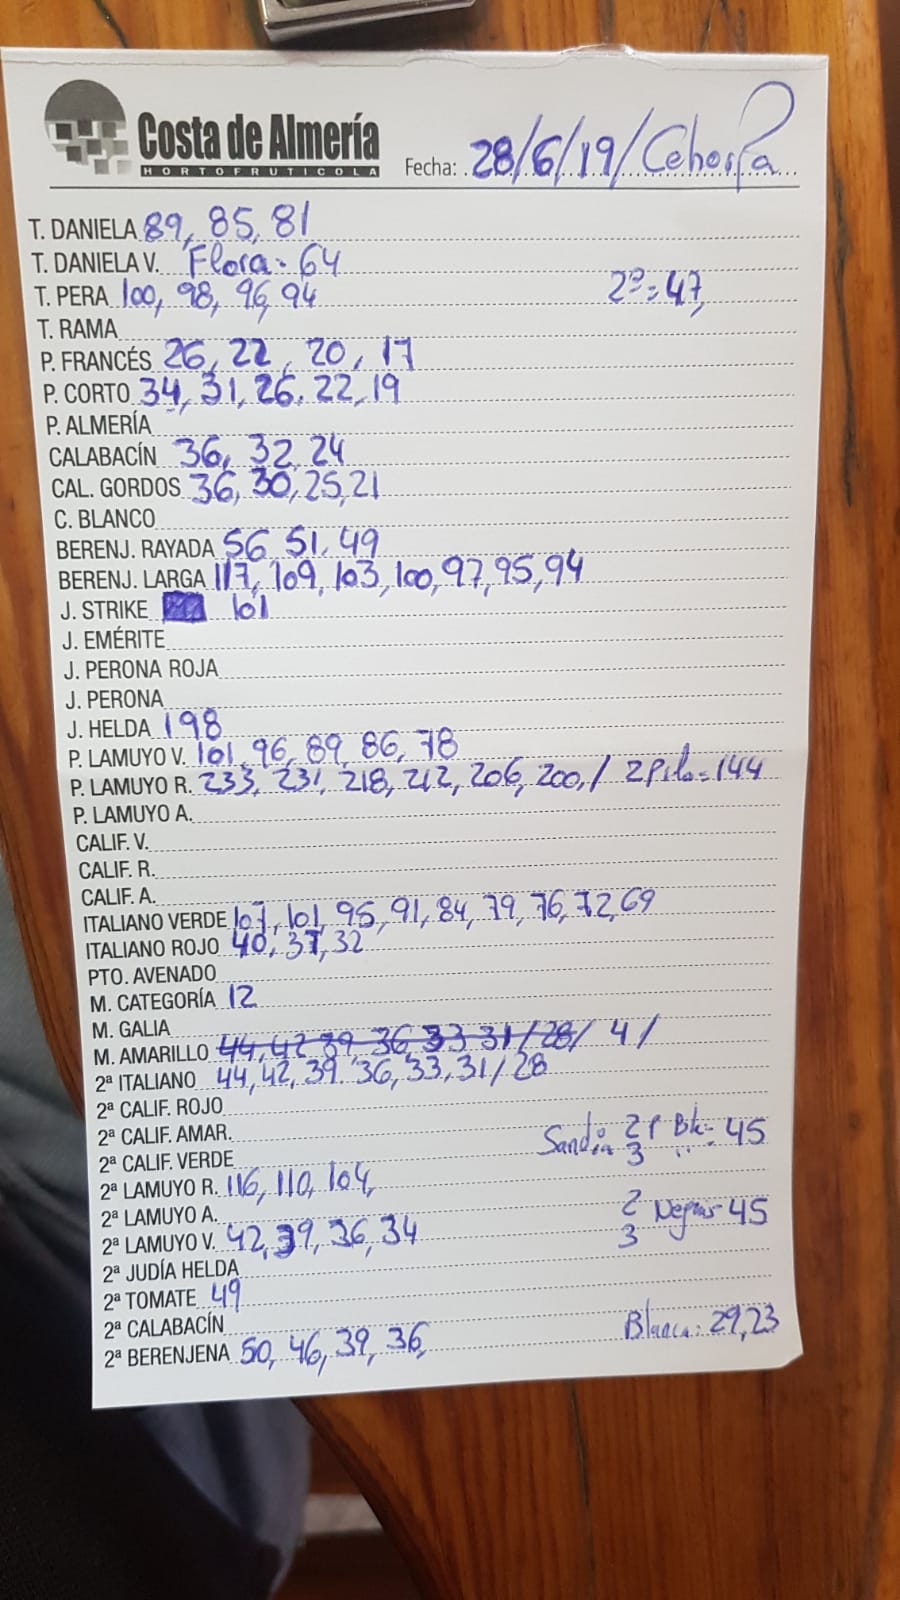 Costa de Almería
HORTOFRUTICOLA
Fecha: 28/6/19/Cehorpa
T. DANIELA 89, 85, 81
T. DANIELA V. Flora: 64
T. PERA 100, 98, 96, 94 2ª= 47,
T. RAMA
P. FRANCÉS 26, 22, 20, 17
P. CORTO 34, 31, 26, 22, 19
P. ALMERÍA
CALABACÍN 36, 32, 24
CAL. GORDOS 36, 30, 25, 21
C. BLANCO
BERENJ. RAYADA 56 51, 49
BERENJ. LARGA 117, 109, 103, 100, 97, 95, 94
J. STRIKE 101
J. EMÉRITE
J. PERONA ROJA
J. PERONA
J. HELDA 198
P. LAMUYO V. 101, 96, 89, 86, 78
P. LAMUYO R. 233, 231, 218, 212, 206, 200, / 2 = 144
P. LAMUYO A.
CALIF. V.
CALIF. R.
CALIF. A.
ITALIANO VERDE 107, 101, 95, 91, 84, 79, 76, 72, 69
ITALIANO ROJO 40, 37, 32
PTO. AVENADO
M. CATEGORÍA 12
M. GALIA
M. AMARILLO 44, 42 39, 36, 33 31/28/ 4/
2ª ITALIANO 44, 42, 39. 36, 33, 31/28
2ª CALIF. ROJO
2ª CALIF. AMAR.
2ª CALIF. VERDE Sandia 2 P Bk= 45
3 "
2ª LAMUYO R. 116, 110, 104,
2ª LAMUYO A. 2 Negras 45
2ª LAMUYO V. 42, 39, 36, 34 3
2ª JUDÍA HELDA
2ª TOMATE 49
2ª CALABACÍN Blanca: 29, 23
2ª BERENJENA 50, 46, 39, 36,